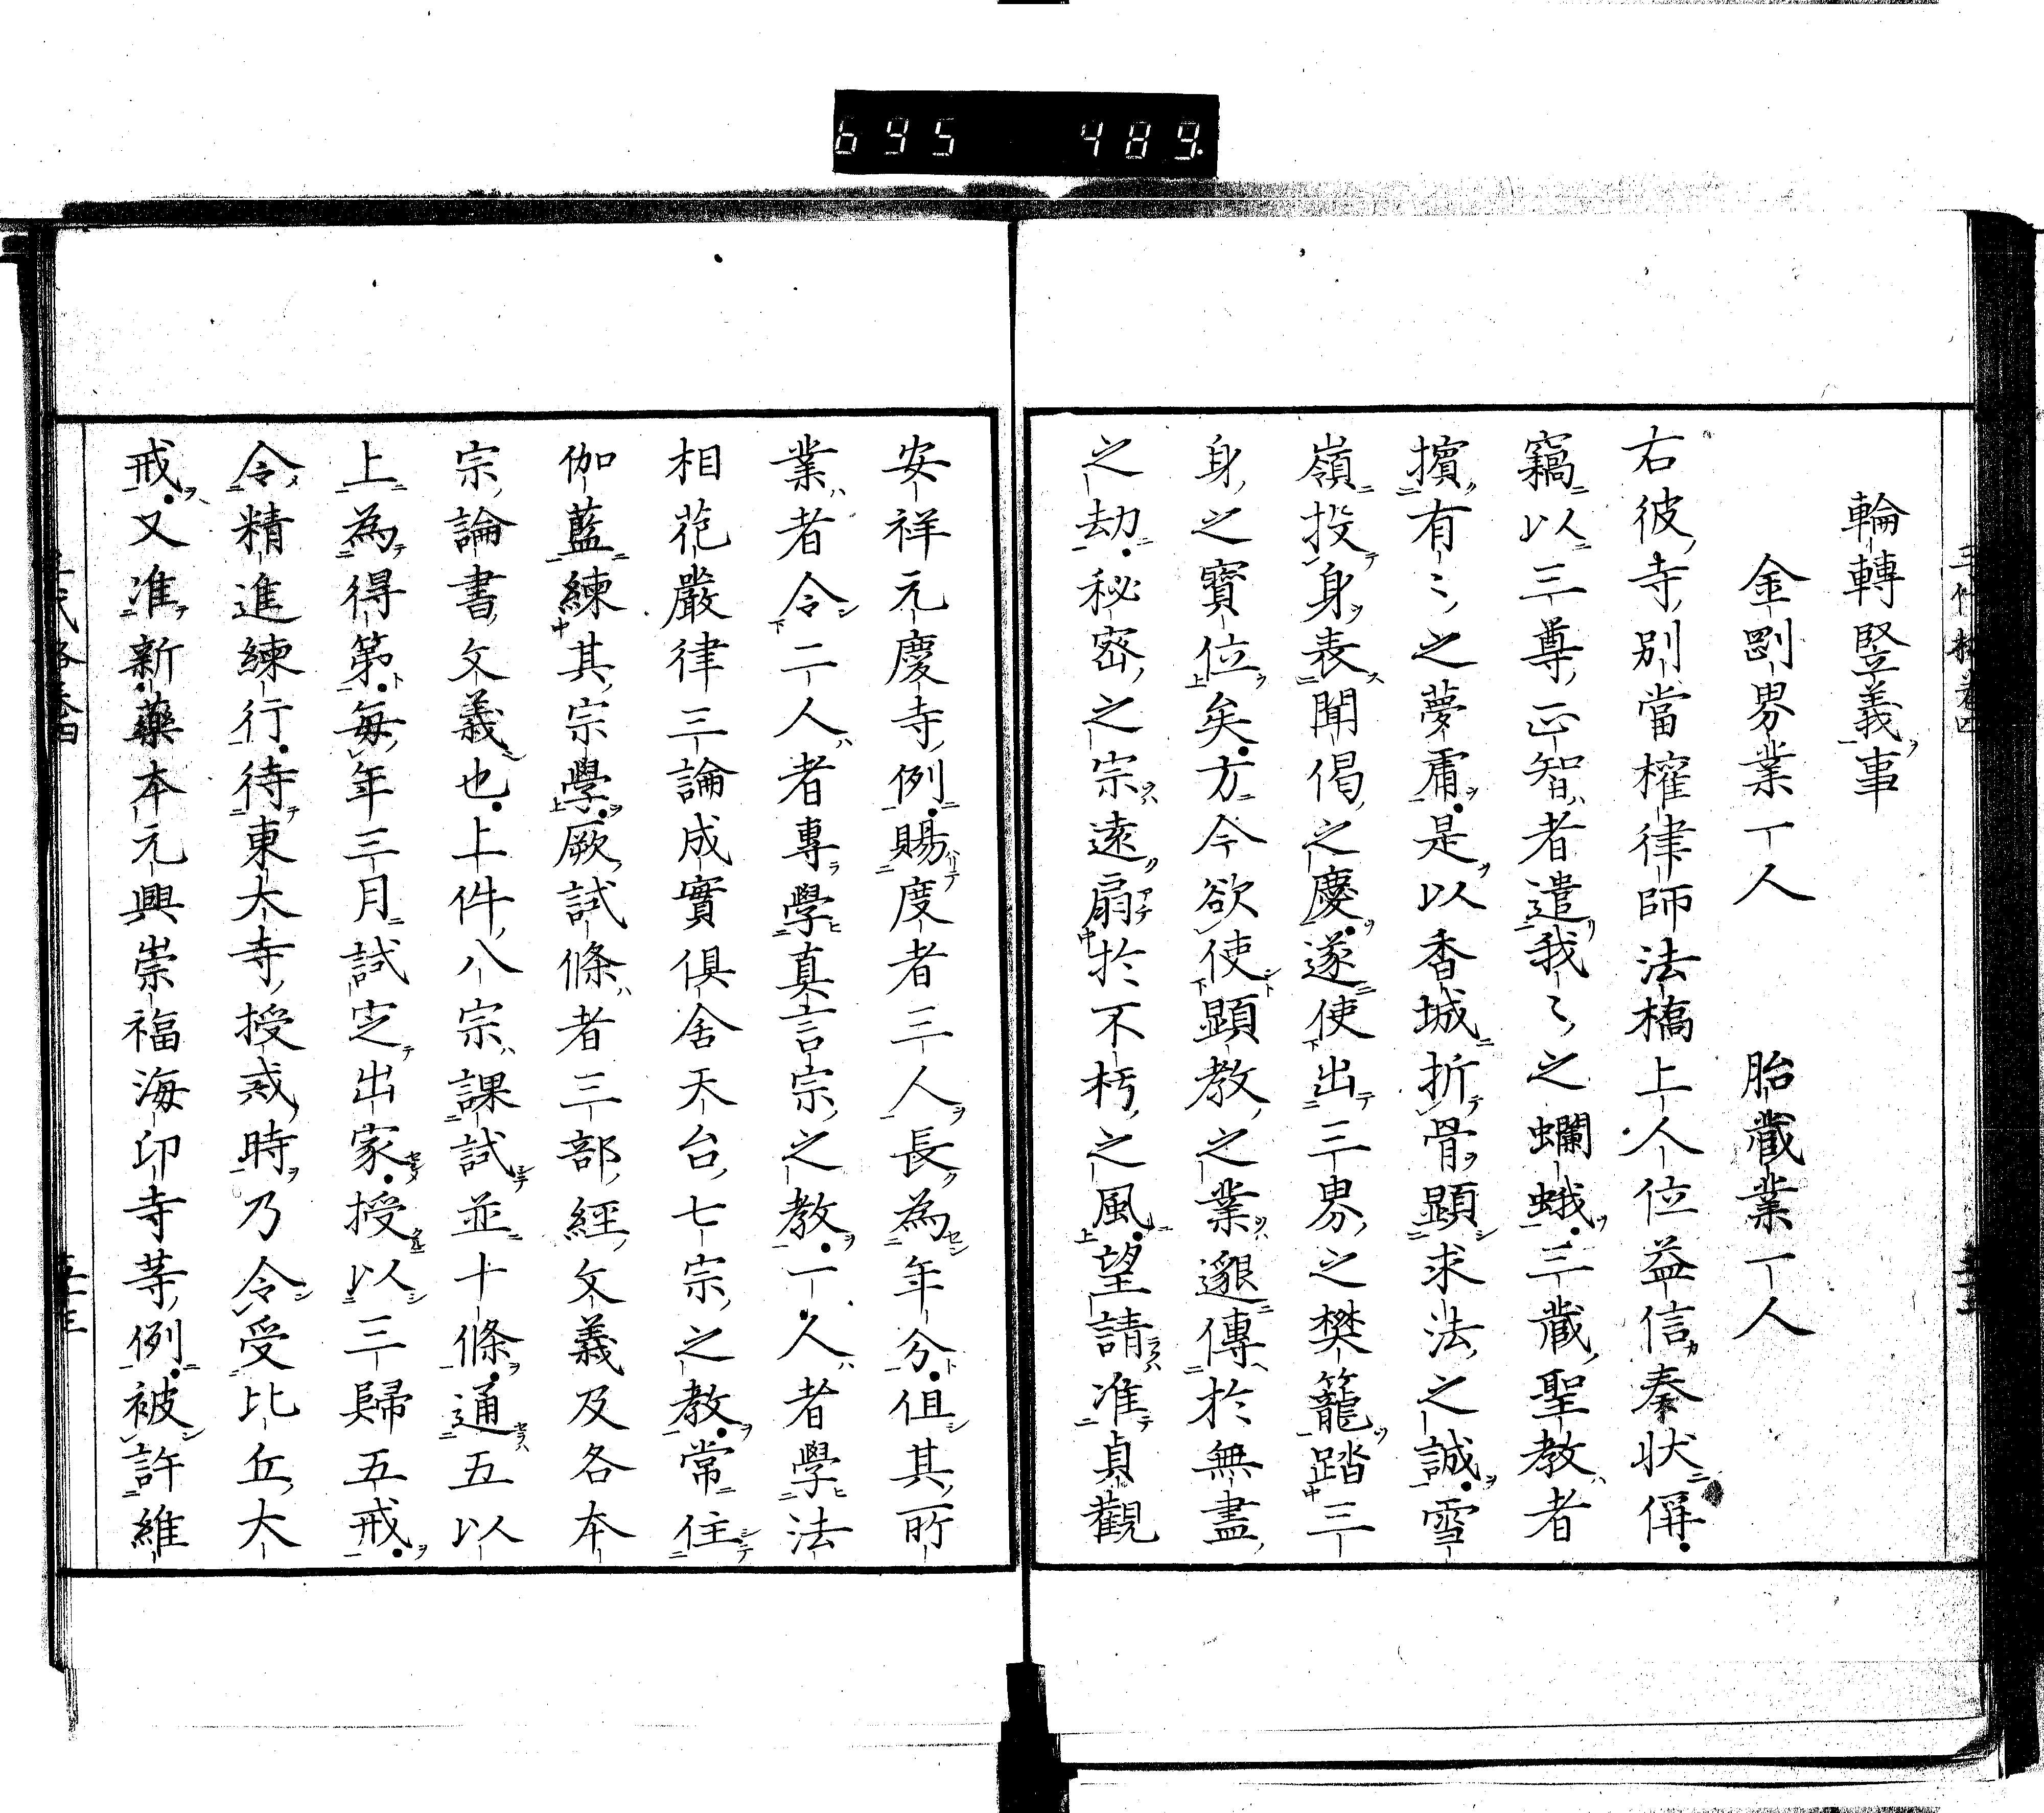 695 489
輪轉竪義事
金剛界業一人　胎蔵業一人
右彼寺別當權律師法橋上人位益信奏状偁
竊以三尊正智者遣我〻之蠟蛾三蔵聖教者
擯有〻之夢虜是以香城折骨顕求法之誠雪
嶺投身表聞偈之慶遂使出三界之樊籠踏三
身之寶位矣方今欲使顕教之業邈傳於無盡
之劫秘密之宗遠扇於不朽之風望請准貞觀
安祥元慶寺例賜度者三人長為年分但其所
業者令二人者專學真言宗之教一人者學法
相花嚴律三論成實倶舍天台七宗之教常住
伽藍練其宗學厥試條者三部經文義及各本
宗論書文義也上件八宗課試並十條通五以
上為得第毎年三月試定出家授以三歸五戒
令精進練行待東大寺授戒時乃令受比丘大
戒又准新藥本元興崇福海印寺等例被許維